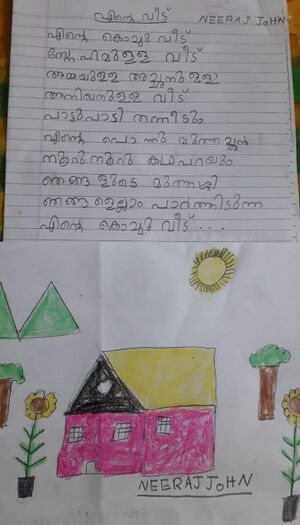 എന്റെ വീട്
NEERAJ JOHN
എന്റെ കൊച്ചു വീട്
സ്നേഹമുള്ള വീട്
അമ്മയുള്ള അച്ഛനുള്ള
അനിയനുള്ള വീട്
പാട്ടുപാടി തന്നീടും
എന്റെ പൊന്നു മുത്തച്ഛൻ
നല്ലനല്ല കഥപറയും
ഞങ്ങളുടെ മുത്തശ്ശി
ഞങ്ങളെല്ലാം പാർത്തിടുന്ന
എന്റെ കൊച്ചു വീട് . . .
NEERAJ JOHN